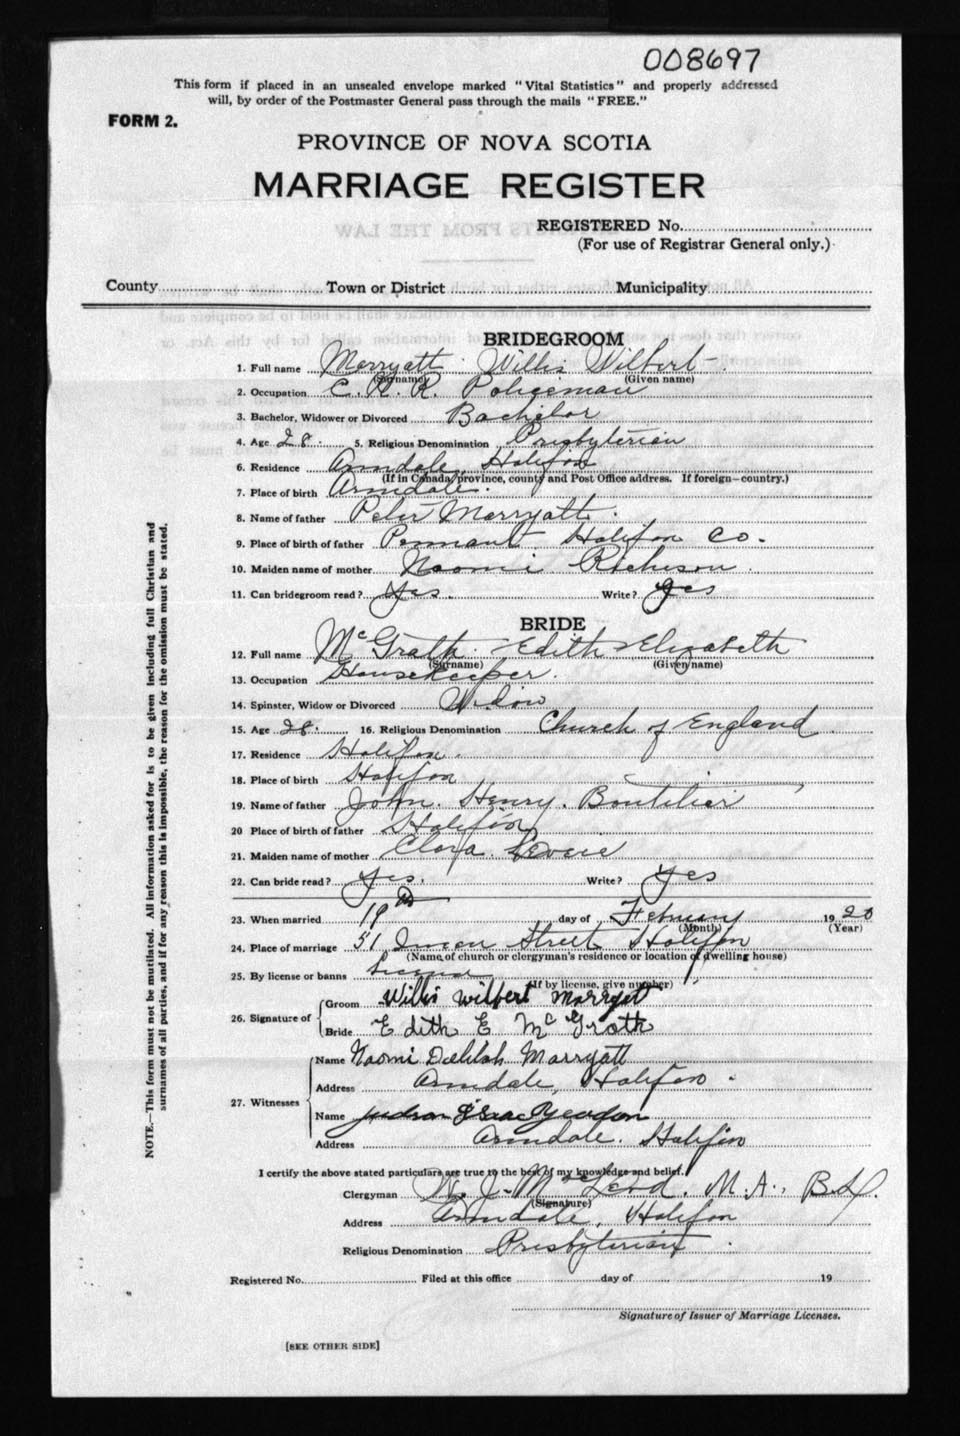 008697
This form if placed in an unsealed envelope marked "Vital Statistics" and properly addressed
will, by order of the Postmaster General pass through the mails "FREE."
FORM 2.
PROVINCE OF NOVA SCOTIA
MARRIAGE REGISTER
REGISTERED No.
(For use of Registrar General only.)
County Town or District Municipality
BRIDEGROOM
1. Full name Merryatt Willis Wilbert
(Surname) (Given name)
2. Occupation C. N. R. Policeman
3. Bachelor, Widower or Divorced Bachelor
4. Age 28. 5. Religious Denomination Presbyterian
6. Residence Armdale, Halifax
(If in Canada, province, county and Post Office address. If foreign—country.)
7. Place of birth Armdale.
8. Name of father Peter Merryatt.
9. Place of birth of father Pennant Halifax Co.
10. Maiden name of mother Naomi Richeson.
11. Can bridegroom read? Yes. Write? Yes
BRIDE
12. Full name McGrath Edith Elizabeth
(Surname) (Given name)
13. Occupation Housekeeper.
14. Spinster, Widow or Divorced Widow
15. Age 28. 16. Religious Denomination Church of England
17. Residence Halifax.
18. Place of birth Halifax
19. Name of father John. Henry. Boutilier
20 Place of birth of father Halifax
21. Maiden name of mother Clara
22. Can bride read? Yes. Write? Yes
23. When married 19th day of February 1920
(Month) (Year)
24. Place of marriage 51 Street Halifax
(Name of church or clergyman's residence or location of dwelling house)
25. By license or banns License
(If by license, give number)
26. Signature of
Groom Willis Wilbert Marryatt
Bride Edith E McGrath
27. Witnesses
Name Naomi Delilah Marryatt
Address Armdale, Halifax.
Name Judson Isaac Yeadon
Address Armdale. Halifax
I certify the above stated particulars are true to the best of my knowledge and belief.
Clergyman W. J. McLeod. M.A., B.D.
(Signature)
Address Armdale, Halifax
Religious Denomination Presbyterian.
Registered No. Filed at this office day of 19
Signature of Issuer of Marriage Licenses.
[SEE OTHER SIDE]
NOTE.—This form must not be mutilated. All information asked for is to be given including full Christian and
surnames of all parties, and if for any reason this is impossible, the reason for the omission must be stated.